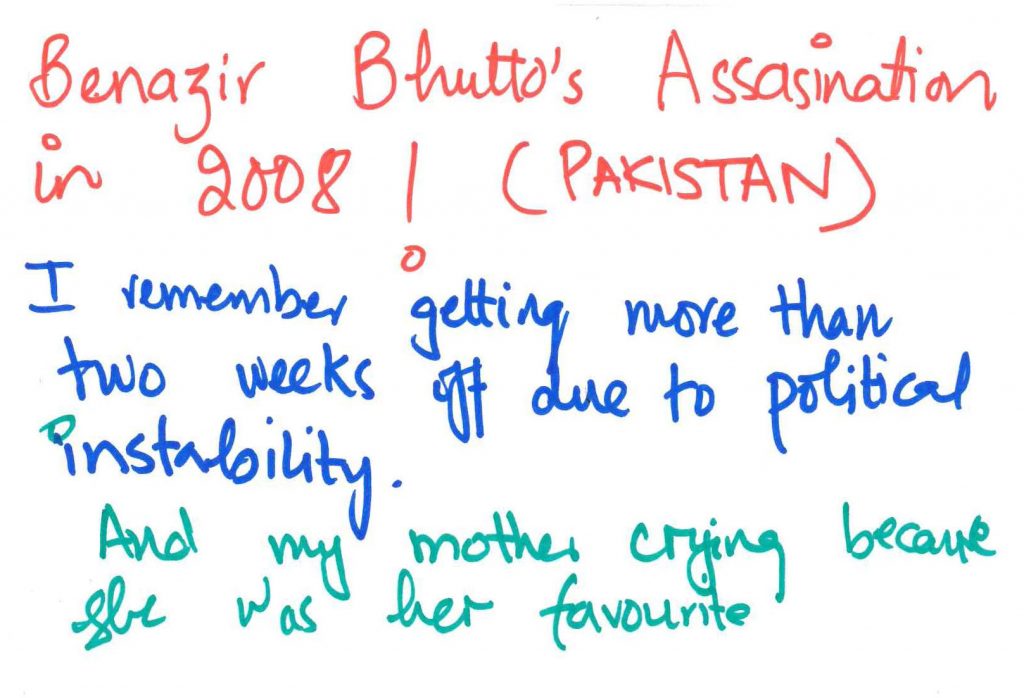 Benazir Bhutto's Assasination
in 2008 | (PAKISTAN)
I remember getting more than
two weeks off due to political
instability.
And my mother crying because
she was her favourite